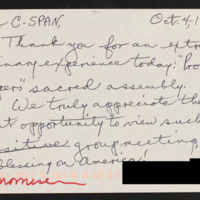 C-SPAN, Oct. 4, 1
Thank you for an extr
inary experience today: "Pro
ers" sacred assembly.
We truly appreciate the
t opportunity to view such
sitive group meeting,
blessing on America!